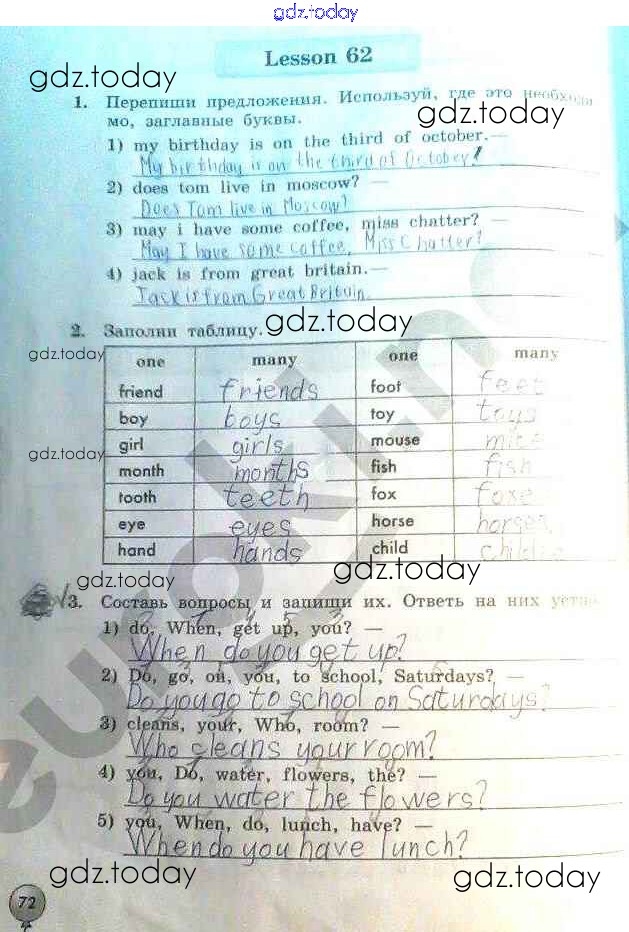 gdz.today
Lesson 62
gdz.today
gdz.today
1. Перепиши предложения. Используй, где это необходи
мо, заглавные буквы.
1) my birthday is on the third of october. —
My birthday is on the third of October!
2) does tom live in moscow? —
Does Tom live in Moscow?
3) may i have some coffee, miss chatter? —
May I have some coffee, Miss Chatter?
4) jack is from great britain. —
Jack is from Great Britain.
2. Заполни таблицу.
gdz.today
gdz.today
one many one many
friend friends foot feet
boy boys toy toys
girl girls mouse mice
gdz.today
month months fish fish
tooth teeth fox foxe
eye eyes horse horses
hand hands child child
gdz.today
gdz.today
3. Составь вопросы и запиши их. Ответь на них устно
1) do, When, get up, you? —
When do you get up?
2) Do, go, on, you, to school, Saturdays? —
Do you go to school on Saturdays?
3) cleans, your, Who, room? —
Who cleans your room?
4) you, Do, water, flowers, the? —
Do you water the flowers?
5) you, When, do, lunch, have? —
When do you have lunch?
gdz.today
gdz.today
72
euroki.no